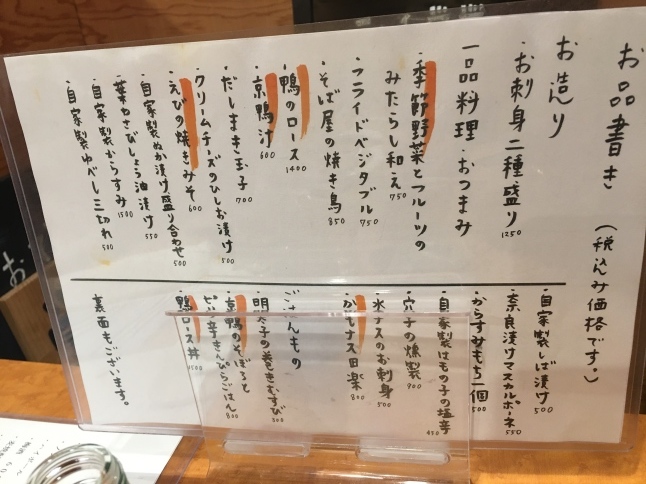 お品書き (税込み価格です。)
お造り
お刺身二種盛り 1250
一品料理・おつまみ
・季節野菜とフルーツの
みたらし和え 750
・フライドベジタブル 750
・そば屋の焼き鳥 850
・鴨のロース 1400
・京鴨汁 600
・だしまき玉子 700
・クリームチーズのひしお漬け 500
・えびの焼きみそ 600
・自家製ぬか漬け盛り合わせ 500
・葉わさびしょう油漬け 550
・自家製からすみ 1500
・自家製ゆべし三切れ 500
・自家製しば漬け 500
・奈良漬けマスカルポーネ 550
・からすみもち一個 500
・自家製はもの子の塩辛 450
・穴子の燻製 900
・水ナスのお刺身 500
・かもナス田楽 800
ごはんもの
・明太子の巻きむすび 300
・京鴨のそぼろと
ピリ辛きんぴらごはん 800
・鴨ロース丼 1500
裏面もございます。